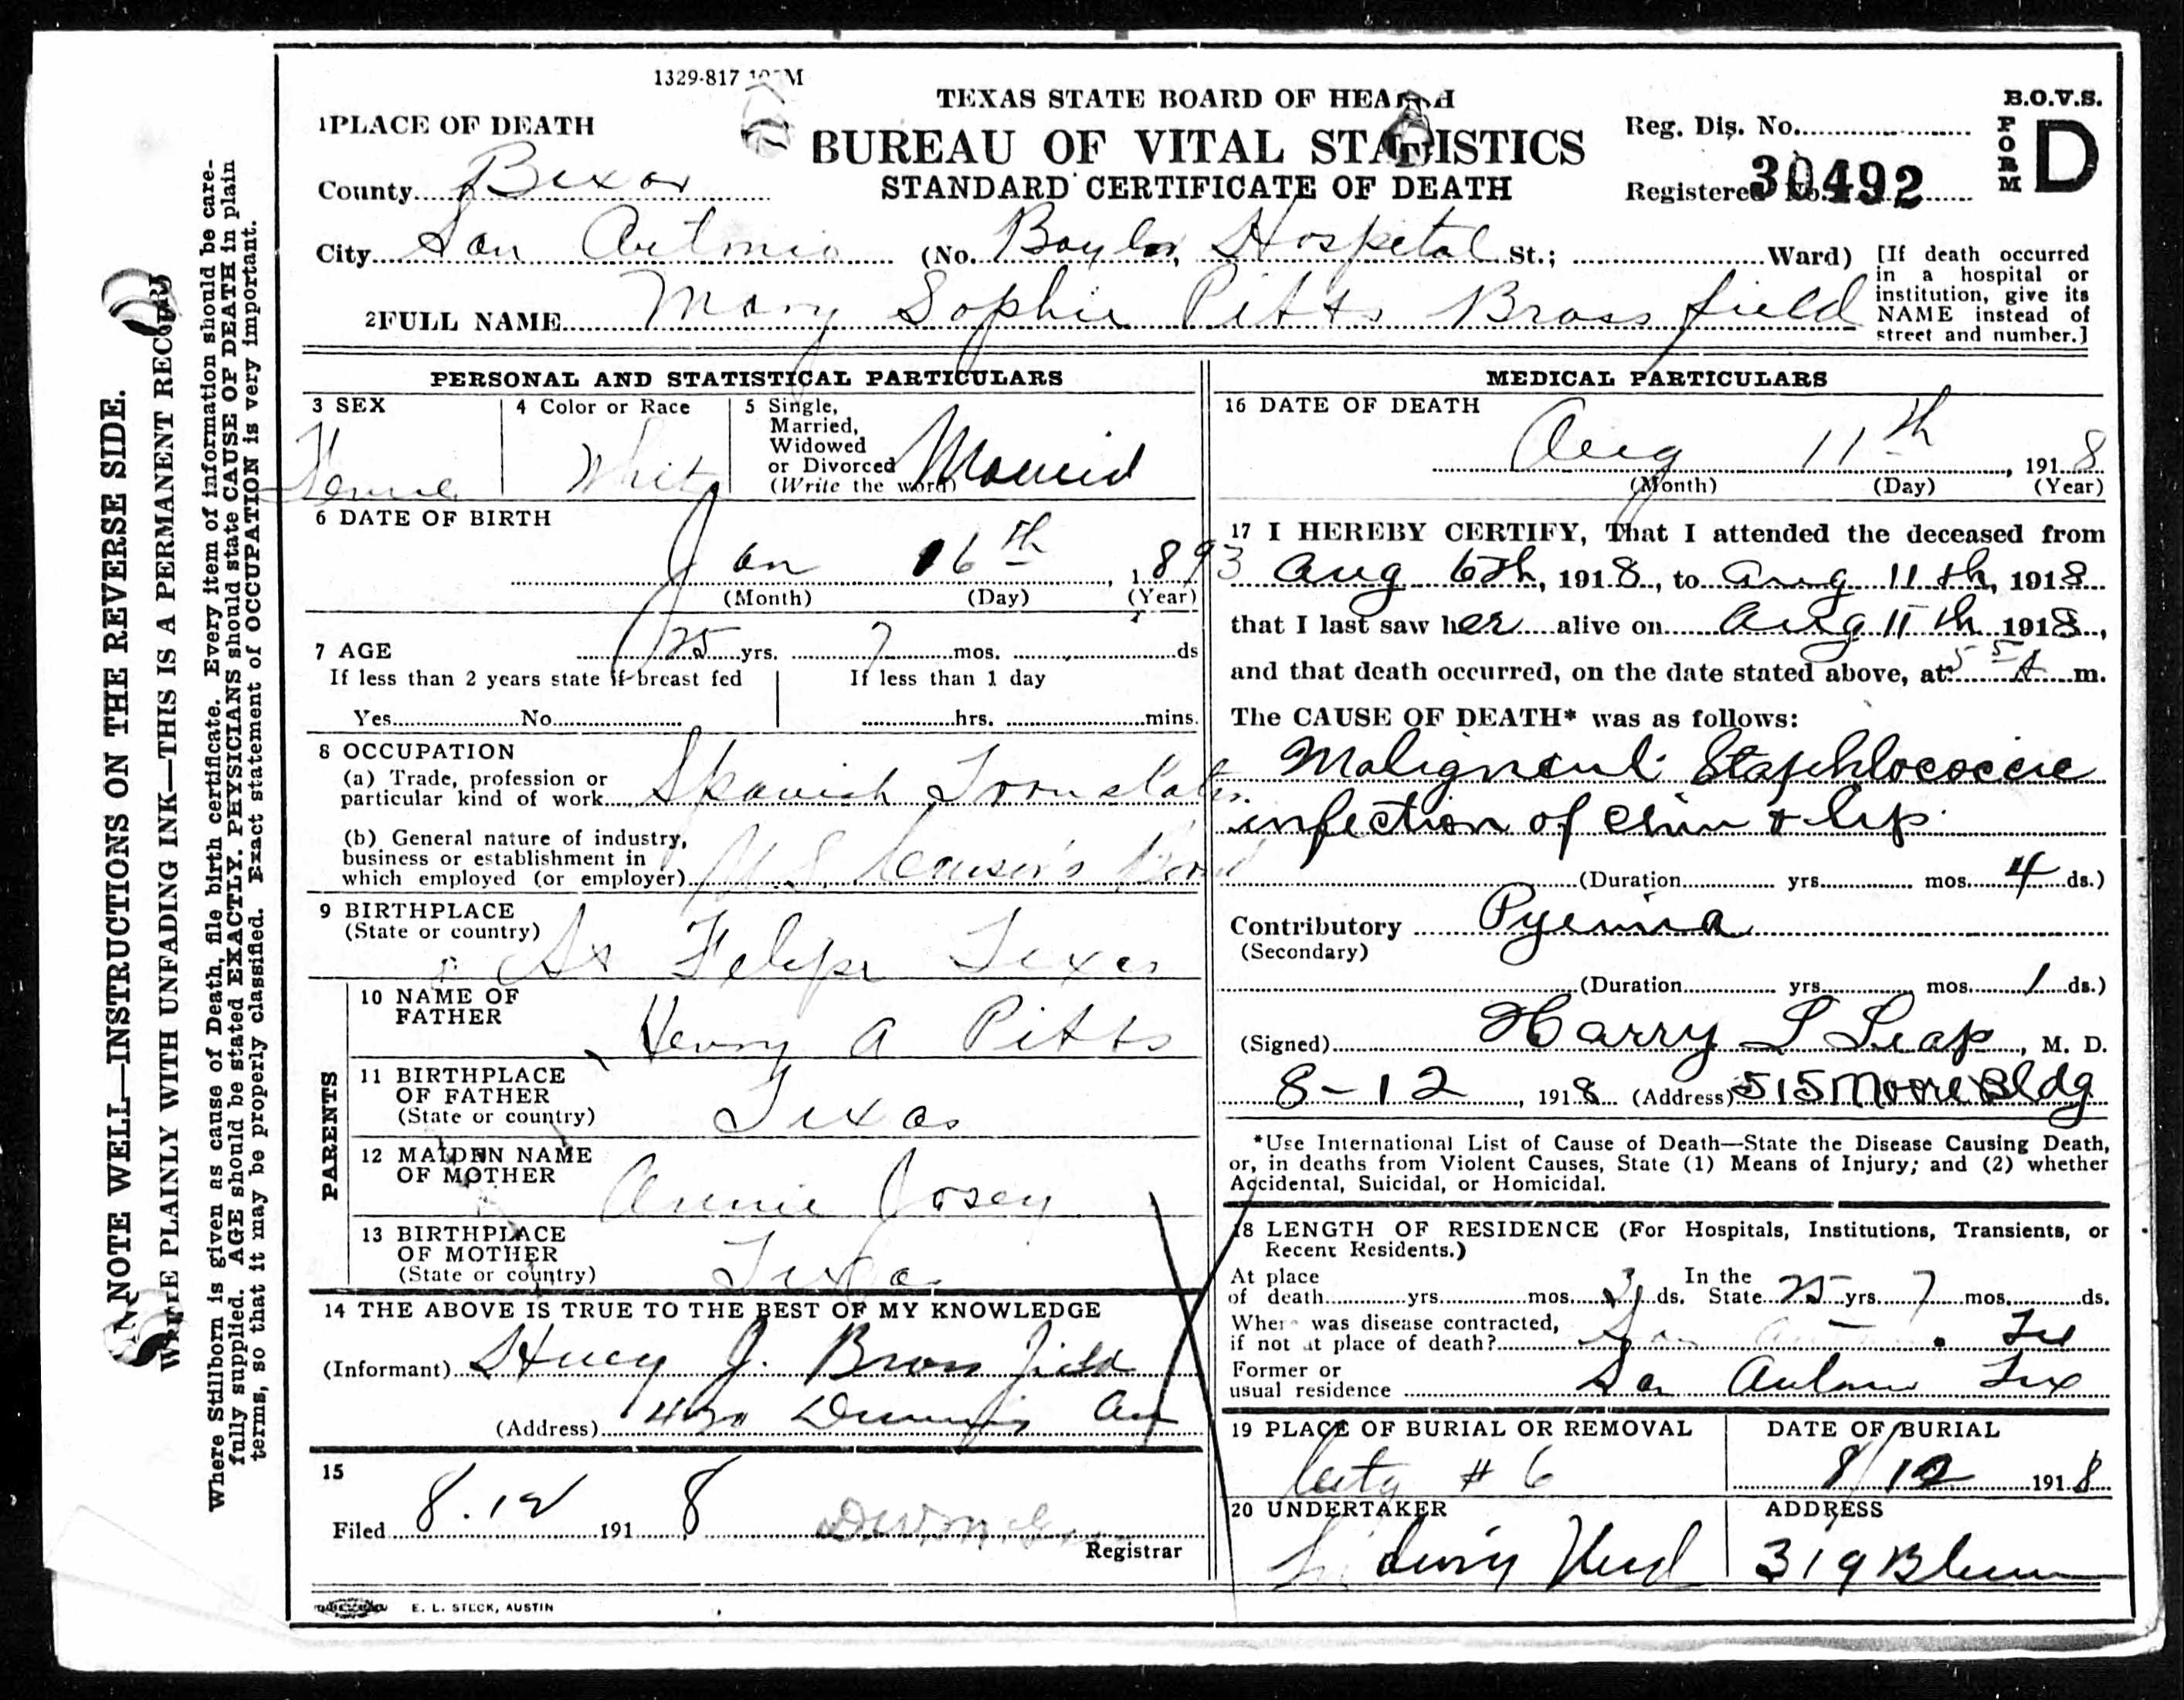 1329-817
TEXAS STATE BOARD OF HEALTH
B.O.V.S.
FORM D
1 PLACE OF DEATH
BUREAU OF VITAL STATISTICS
STANDARD CERTIFICATE OF DEATH
Reg. Dis. No.
Registered No. 30492
County Bexar
City San Antonio (No. Baylor Hospital St.; Ward)
[If death occurred
in a hospital or
institution, give its
NAME instead of
street and number.]
2 FULL NAME Mary Sophie Pitts Brassfield
PERSONAL AND STATISTICAL PARTICULARS
3 SEX
4 Color or Race White
5 Single,
Married,
Widowed
or Divorced
(Write the word) Married
6 DATE OF BIRTH
Jan 16th, 1893
(Month) (Day) (Year)
7 AGE 25 yrs. 7 mos. ds
If less than 2 years state if breast fed
If less than 1 day
Yes No
hrs. mins.
8 OCCUPATION
(a) Trade, profession or
particular kind of work Spanish Translator
(b) General nature of industry,
business or establishment in
which employed (or employer) U.S. Censor's
9 BIRTHPLACE
(State or country)
Felipe Texas
PARENTS
10 NAME OF
FATHER
Henry A Pitts
11 BIRTHPLACE
OF FATHER
(State or country) Texas
12 MAIDEN NAME
OF MOTHER
Annie Josey
13 BIRTHPLACE
OF MOTHER
(State or country) Texas
14 THE ABOVE IS TRUE TO THE BEST OF MY KNOWLEDGE
(Informant) J. Brassfield
(Address)
15
Filed 8.12 1918
Registrar
E. L. STECK, AUSTIN
MEDICAL PARTICULARS
16 DATE OF DEATH
Aug 11th, 1918
(Month) (Day) (Year)
17 I HEREBY CERTIFY, That I attended the deceased from
Aug 6th, 1918, to Aug 11th, 1918
that I last saw her alive on Aug 11th 1918,
and that death occurred, on the date stated above, at A m.
The CAUSE OF DEATH* was as follows:
Malignant Staphlococcic
infection of chin & lip
(Duration yrs. mos. 4 ds.)
Contributory Pyemia
(Secondary)
(Duration yrs. mos. 1 ds.)
(Signed) Harry L Leap, M. D.
8-12, 1918 (Address) 515 Moore Bldg
*Use International List of Cause of Death—State the Disease Causing Death,
or, in deaths from Violent Causes, State (1) Means of Injury; and (2) whether
Accidental, Suicidal, or Homicidal.
18 LENGTH OF RESIDENCE (For Hospitals, Institutions, Transients, or
Recent Residents.)
At place
of death yrs. mos. ds. In the State 25 yrs. 7 mos. ds.
Where was disease contracted,
if not at place of death? San
Former or
usual residence San Antonio Tex
19 PLACE OF BURIAL OR REMOVAL
City #6
DATE OF BURIAL
8/12 1918
20 UNDERTAKER
ADDRESS
319
NOTE WELL—INSTRUCTIONS ON THE REVERSE SIDE.
WRITE PLAINLY WITH UNFADING INK—THIS IS A PERMANENT RECORD
Where Stillborn is given as cause of Death, file birth certificate. Every item of information should be care-
fully supplied. AGE should be stated EXACTLY. PHYSICIANS should state CAUSE OF DEATH in plain
terms, so that it may be properly classified. Exact statement of OCCUPATION is very important.